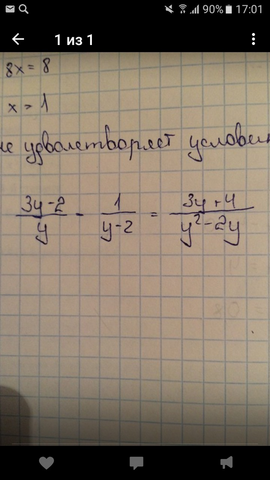 90% 17:01
1 из 1
8x = 8
x = 1
не удволетворяет условию
3y-2/y - 1/y-2 = 3y+4/y²-2y